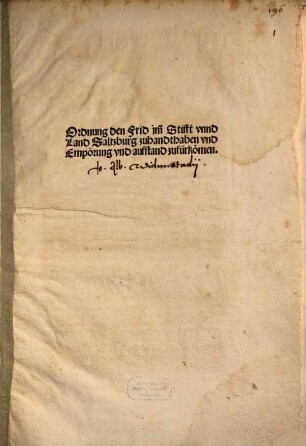 196
1
Ordnung den Frid jm̄ Stifft vnnd
Land Saltzburg zuhandthaben vnd
Empörung vnd auffstand zufürkōmen.
Jo. Alb. Widmestadij.